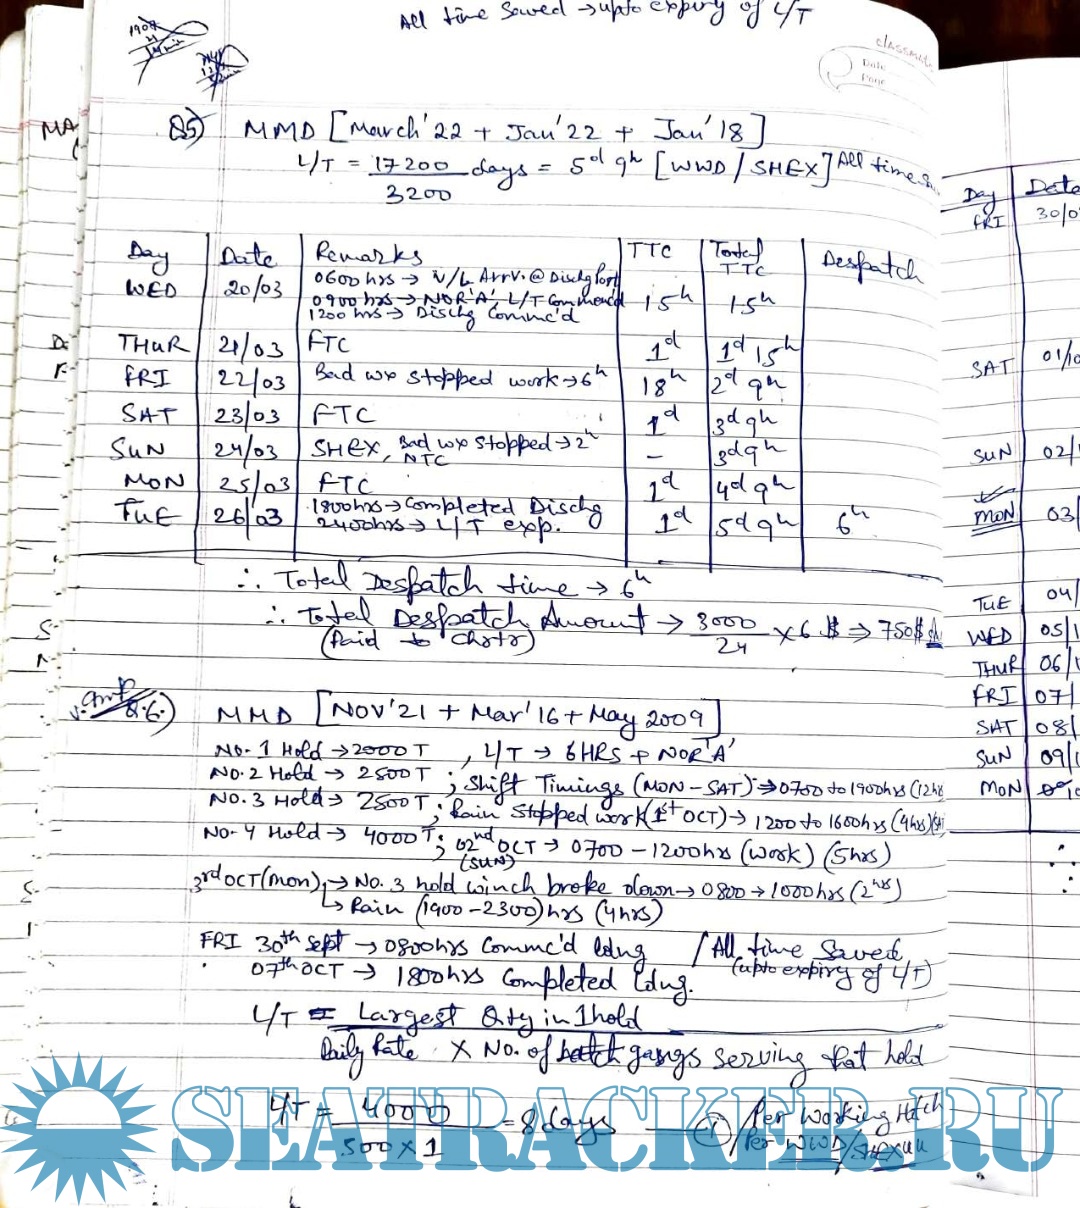 All time Saved → upto expiry of L/T
classmate
Date
Page
MA
Q5) MMD [March'22 + Jan'22 + Jan'18]
L/T = 17200 days = 5d 9h [WWD/SHEX] All time
3200
Day | Date | Remarks | TTC | Total TTC | Despatch
WED | 20/03 | 0600 hrs → V/L Arrv. @ Dischg Port
0900 hrs → NOR'A', L/T Commen'd | 15h | 15h
1200 hrs → Dischg Commc'd
THUR | 21/03 | FTC | 1d | 1d 15h
FRI | 22/03 | Bad wx stopped work → 6h | 18h | 2d 9h
SAT | 23/03 | FTC | 1d | 3d 9h
SUN | 24/03 | SHEX, Bad wx stopped → 2h | – | 3d 9h
NTC
MON | 25/03 | FTC | 1d | 4d 9h
TUE | 26/03 | 1800hrs → Completed Dischg
2400hrs → L/T exp. | 1d | 5d 9h | 6h
∴ Total Despatch time → 6h
∴ Total Despatch Amount → 3000 × 6 $ ⇒ 750$
(Paid to Chrtr) 24
v.Imp Q.6.) MMD [NOV'21 + Mar'16 + May 2009]
No. 1 Hold → 2000T , L/T → 6HRS + NOR'A'
No. 2 Hold → 2500T ; Shift Timings (MON-SAT) → 0700 to 1900hrs (12h
No. 3 Hold → 2500T ; Rain stopped work (1st OCT) → 1200 to 1600hrs (4hrs)
No. 4 Hold → 4000T ; 02nd OCT → 0700 - 1200hrs (work) (5hrs)
(SUN)
3rd OCT (mon), → No. 3 hold winch broke down → 0800 → 1000hrs (2hrs)
↳ Rain (1900 - 2300) hrs (4hrs)
FRI 30th Sept → 0800hrs Commc'd ldng / All time Saved
07th OCT → 1800hrs Completed ldng. (upto expiry of L/T)
L/T = Largest Qty in 1 hold
Daily Rate × No. of gangs serving that hold
L/T = 4000 = 8 days — (1) / Per Working Hatch
500 × 1 Per WWD/SHEXUU
Day | Date
FRI | 30/0
SAT | 01/10
SUN | 02/
MON | 03/
TUE | 04/
WED | 05/1
THUR | 06/1
FRI | 07/
SAT | 08/
SUN | 09/1
MON
SEATRACKER.RU